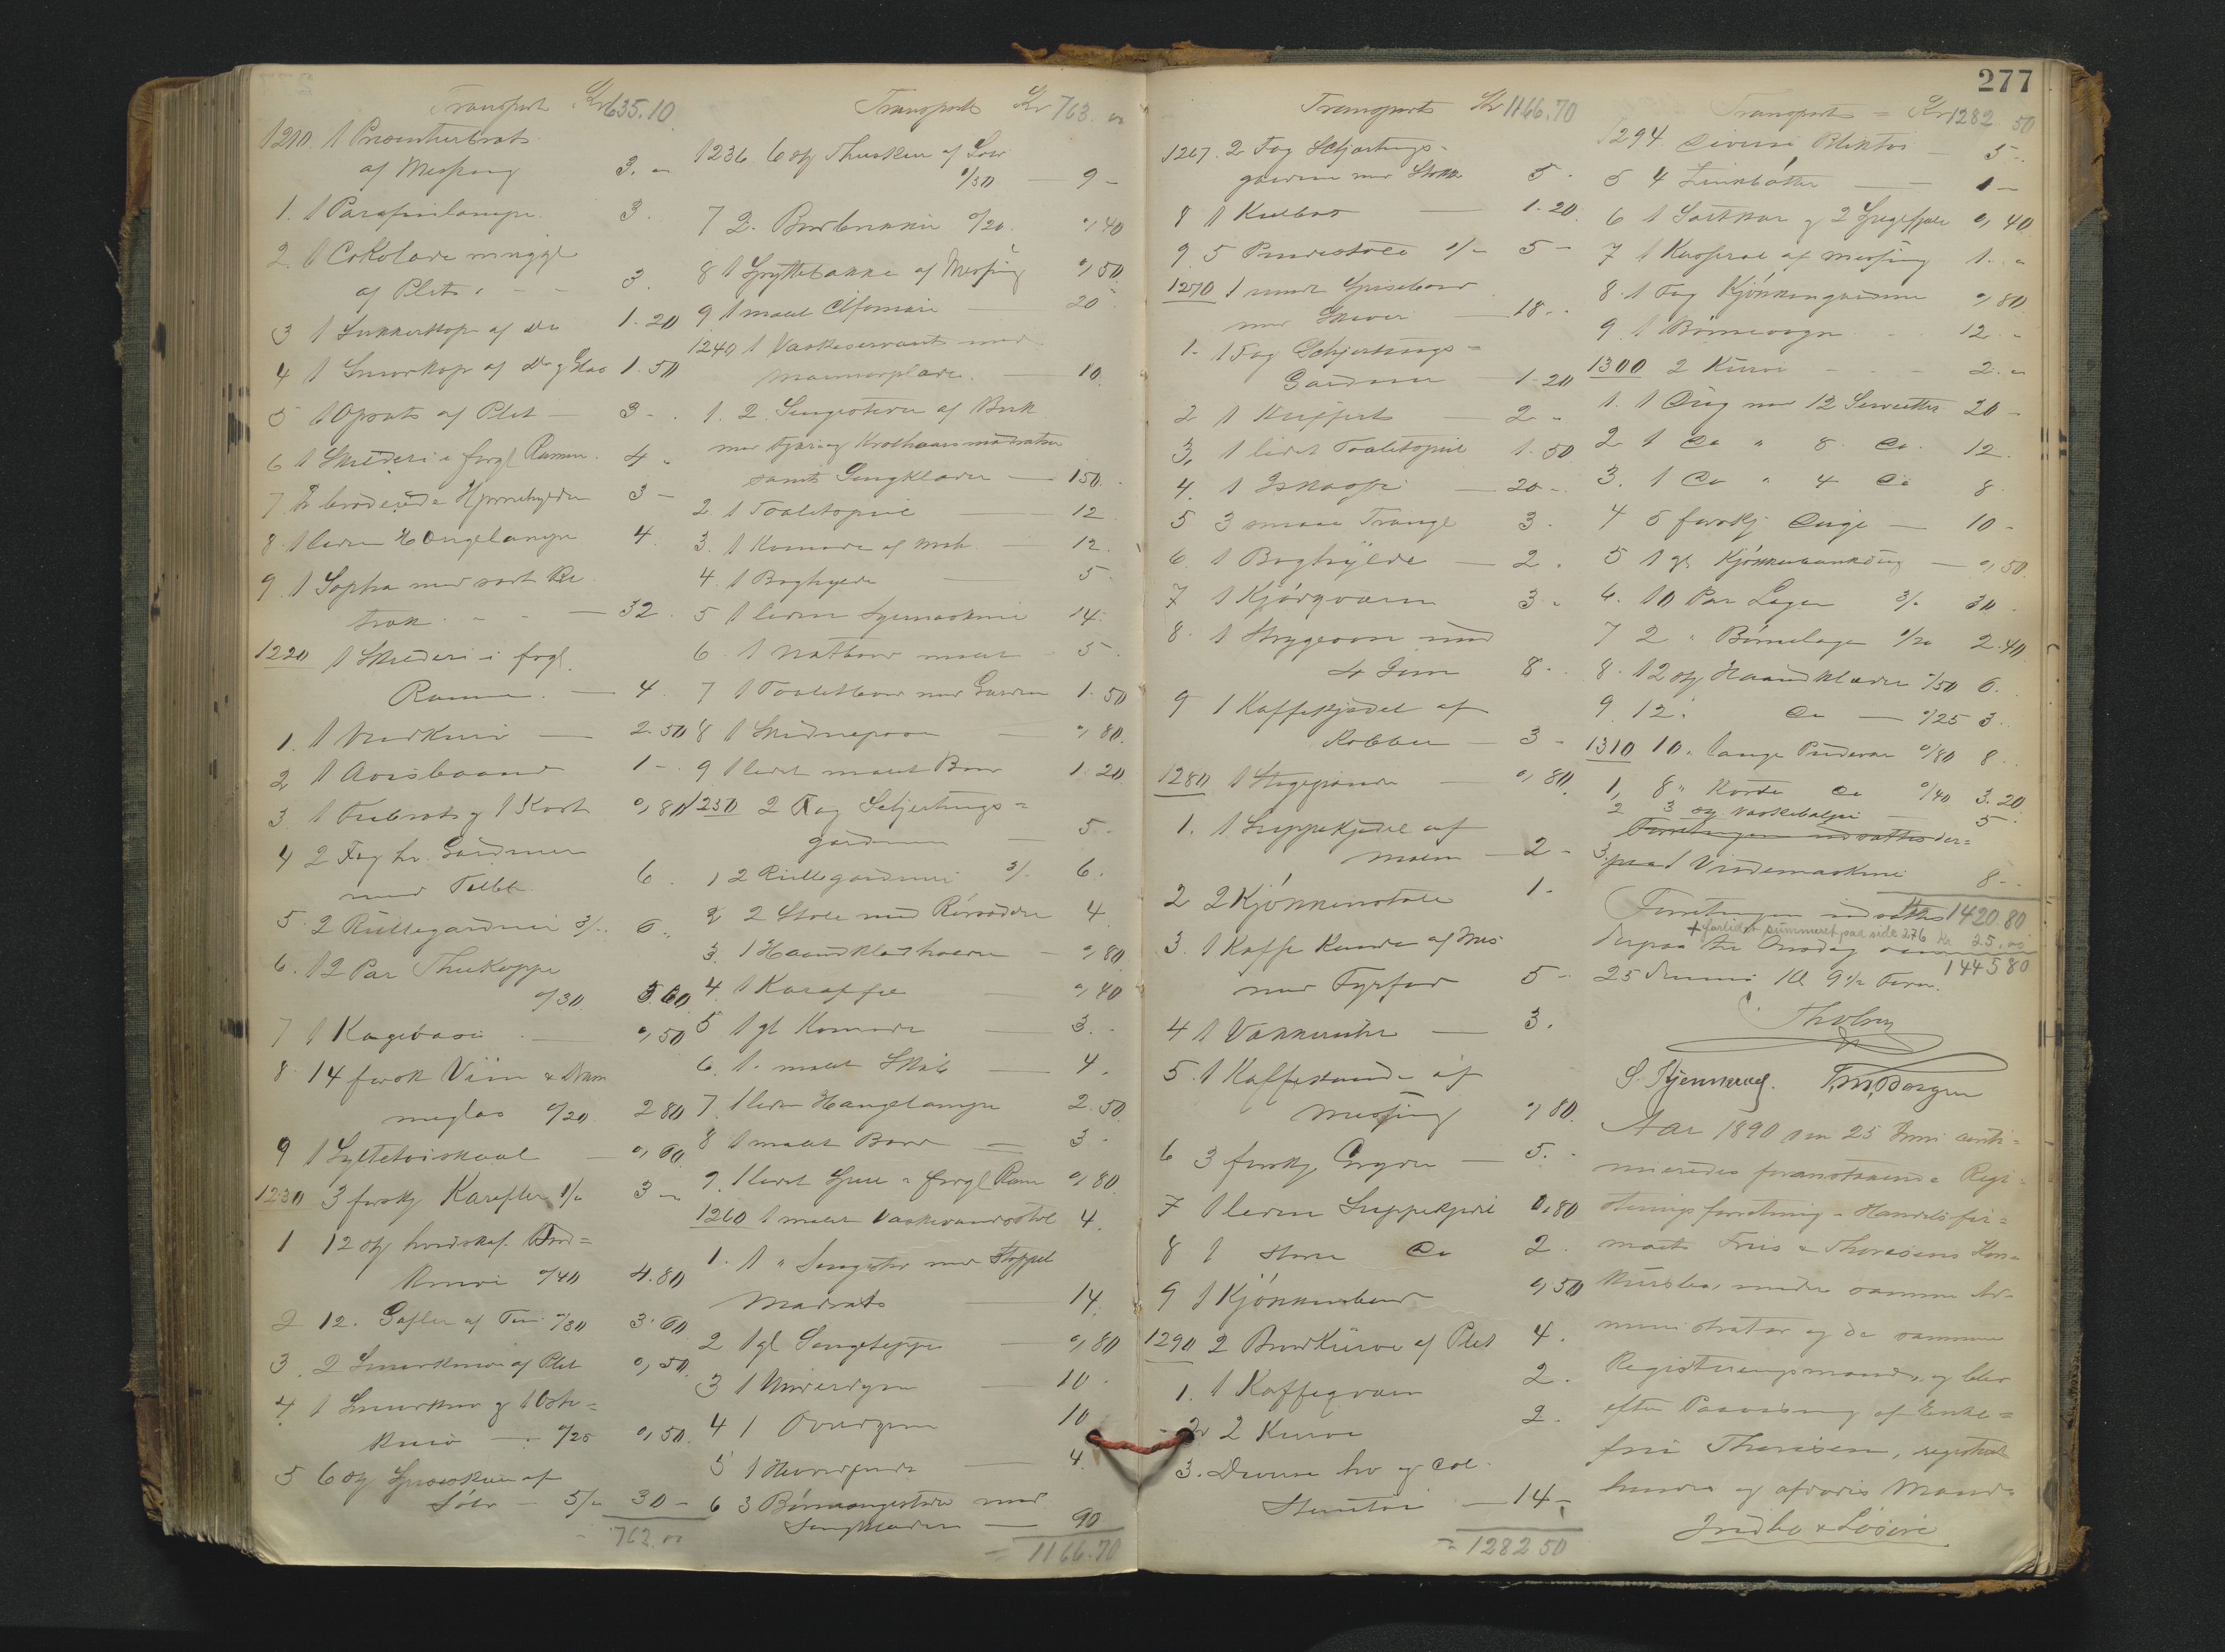 Transport Kr 635.10
1210. 1 Præsenteerbræt
af Messing 3. "
1. 1 Parafinlampe 3.
2. 1 Cokolade mugge
af Plet " - - 3.
3 1 Sukkerkop af Do 1.20
4 1 Smørkop af Do g Glas 1.50
5 1 Opsats af Plet - 3 -
6 1 Skilderi i forgl Ramme. 4 "
7. br broderede Hjørnehylder 3 -
8. 1 liden Hængelampe 4.
9. 1 Sopha med sort Be
træk " - - 32.
1220 1 Skilderi i forgl.
Ramme. - 4.
1. 1 Vedkurv - 2.50
2 1 Avisbaand 1 -
3. 1 Træbræt g 1 Kost 0,80
4 2 Fag hv. Gardiner
med Tilbh. 6.
5. 2 Rullegardiner 3/- 6.
6. 12 Par Theekopper
0/30 3.60
7 1 Kagevase - 0,50
8. 14 forsk Viin & Dram
meglas 0/20 2.80
9 1 Syltetøiskaal - 0,60
1230 3 forskj Karafler 1/" 3 -
1 12 stk hvidskaf. Bord=
knive 0/40 4.80
2 12. Gafler af Tin 0/30 3.60
3. 2 Smørknive af Plet 0,50.
4. 1 Smørkniv g 1 Oste=
kniv - 0/25 0,50.
5 6 stk Spiseskeer af
Sølv - 5/- 30 -
= 763.00
Transport Kr 763. "
1236 6 stk Theskeer af Sølv
1/50 - 9 -
7 2. Brødbakker 0/20. 0,40
8 1 Spyttebakke af Messing 0,50
9 1 malet Chifoniere - 20 -
1240 1 Vaskeservant med
marmorplade. - 10.
1. 2. Sengesteder af Birk
med Fjær og Krølhaarsmadratser
samt Sengklæder - 150. -
2. 1 Toiletspeil - 12
3. 1 Komode af Mah - 12.
4. 1 Boghylde - 5.
5 1 liden Symaskine 14.
6. 1 Natbord malet - 5.
7 1 Toiletbord med Gardin 1.50
8 1 Skidnepose - 0,80.
9 1 lidet malet Bord 1.20
1250 2 Fag Schjertings=
gardiner - 5.
1 2 Rullegardiner 3/- 6.
2 2 Stole med Rørsæder 4.
3. 1 Haandklædholder - 0,80
4. 1 Karaffel - 0,40
5 1 gl Komode - 3. -
6. 1. malet Skab - 4.
7. 1 liden Hængelampe 2.50
8 1 malet Bord - 3 -
9. 1 lidet Speil i forgl Ram 0,80
1260 1 malet Vaskevandsstol 4.
1. 1 " Sengested med Stoppet
Madrats - 14.
2 1 gl Sengeteppe - 0,80
3 1 Underdyne - 10.
4 1 Overdyne 10
5 1 Hovedpude - 4.
6 3 Børnesengesteder med
Sengklæder - 90
= 1166.70
Transport Kr 1166.70
1267. 2 Fag Schjertings-
gardiner med Stokke 5.
8 1 Kulbox - 1.20
9 5 Pindestole 1/- 5 -
1270 1 rundt Spisebord
med Skiver - 18 -
1. 1 Fag Schjertings=
Gardiner - 1.20
2 1 Kuffert - 2 -
3, 1 lidet Toiletspeil 1.50
4. 1 Isskab - 20 -
5 3 smaa Trauge 3.
6. 1 Boghylde - 2.
7 1 Kjødqværn 3 "
8. 1 Strygeovn med
4 Jern 8.
9 1 Kaffekjedel af
Kobber - 3 -
1280 1 Stegepande - 0,80.
1. 1 Suppekjedel af
malm - 2 -
2 2 Kjøkkenstole 1 -
3. 1 Kaffe Kande af Mes
med Fyrfad 5 -
4 1 Vækkeruhr - 3.
5. 1 Kaffekande af
Messing 0,80.
6 3 forskj. Gryder - 5. -
7 1 liden Suppekjedel 0,80
8 1 større Do 2.
9 1 Kjøkkenbord 0,50
1290 2 Brødkurve af Plet 4.
1. 1 Kaffeqværn 2.
2 2 Kurve 2.
3. Diverse hv og col.
Stentøi - 14 -
= 1282.50
277
Transport = Kr 1282 50
1294 Diverse Bliktøi - 5 -
5 4 Zinkbøtter - 1 -
6 1 Saltkar g 2 Spegefjæle 0,40
7 1 Kasserol af messing 1. "
8. 1 Fag Kjøkkengardiner 0,80
9. 1 Børnevogn 12 -
1300 2 Kurve - - - 2. "
1. 1 Dug med 12 Servietter 20 -
2 1 Do " 8. Do. 12.
3. 1 Do " 4 Do 8.
4 5 forskj Duge - 10 -
5 1 gl Kjøkkenbænkdug - 0,50
6. 10 Par Lagen 3/- 30.
7 2 " Børnelagen 1/20 2.40
8. 12 stk Haandklæder 0/50 6.
9 12. Do - 0/25 3.
1310 10. lange Pudevar 0/80 8.
1, 8 " korte Do 0/40 3.20
2 3 stk Vaskebaljer - 5.
Forretningen udsattes der=
3. paa 1 Vridemaskine 8 -
Kr 1420.80
Forretningen udsattes
+ forlidet summeret paa side 276 Kr 25.00
derpaa til Onsdag
1445 80
25 Juni Kl 9 1/2 Form.
S. Kjennerud. T. M. Borgen
Aar 1890 den 25 Juni conti=
nueredes foranstaaende Regi=
streringsforretning i Handelsfir=
maets Friis & Thoresens Kon=
kursbo, under samme Ad=
ministrator og de samme
Registreringsmænd, og blev
efter Paavisning af Enke=
fru Thoresen, registreret
hendes og afdøde Mands
Indbo & Løsøre